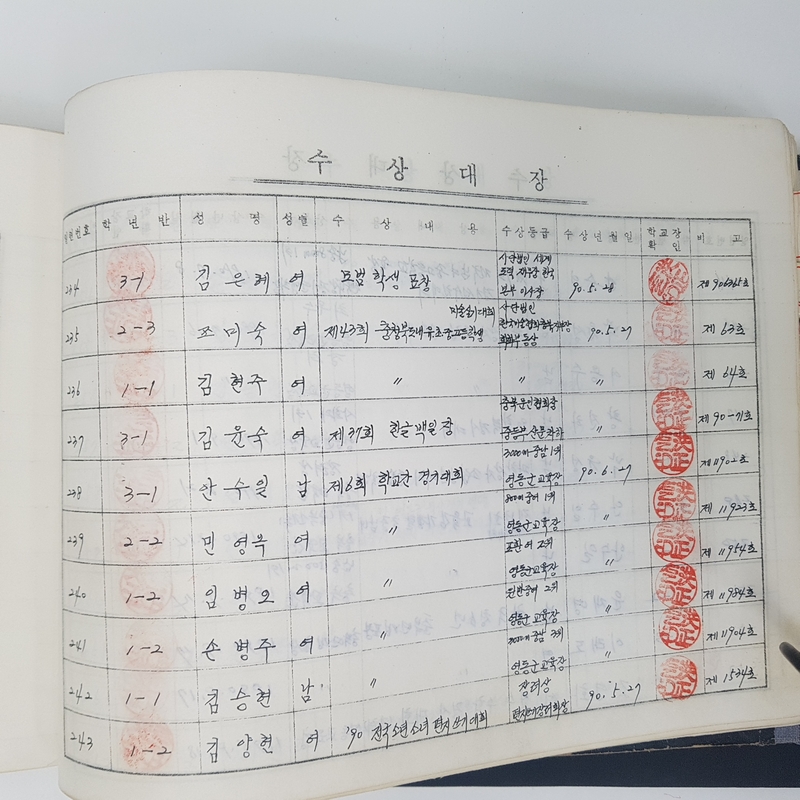 수 상 대 장
학 년 반 성 명 성별 수 상 내 용 수상등급 수상년월일 학교장 확인 비 고
234 3-1 김은혜 여 모범학생 표창 사단법인 세계 한국 본부 이사장 90.5.28 제906365호
235 2-3 조미숙 여 제43회 충청북도내 유.초.중.고등학생 미술실기대회 사단법인 90.5.27 제63호
236 1-1 김현주 여 〃 〃 〃 제64호
237 3-1 김윤숙 여 제37회 한글백일장 충북문인협회장 중등부 산문 〃 제90-71호
238 3-1 안수일 남 제6회 학교간 경기대회 3000m 중남 1위 영동군교육장 90.6.27 제11902호
239 2-2 민영옥 여 〃 800m 중여 1위 영동군교육장 〃 제11923호
240 1-2 임병오 여 〃 포환 여 2위 영동군교육장 〃 제11954호
241 1-2 손병주 여 〃 원반중여 2위 영동군교육장 〃 제11984호
242 1-1 김승현 남 〃 3000m 중남 3위 영동군교육장 〃 제11904호
243 1-2 김양현 여 '90 전국 소년소녀 편지쓰기 대회 장려상 90.5.27 제1534호